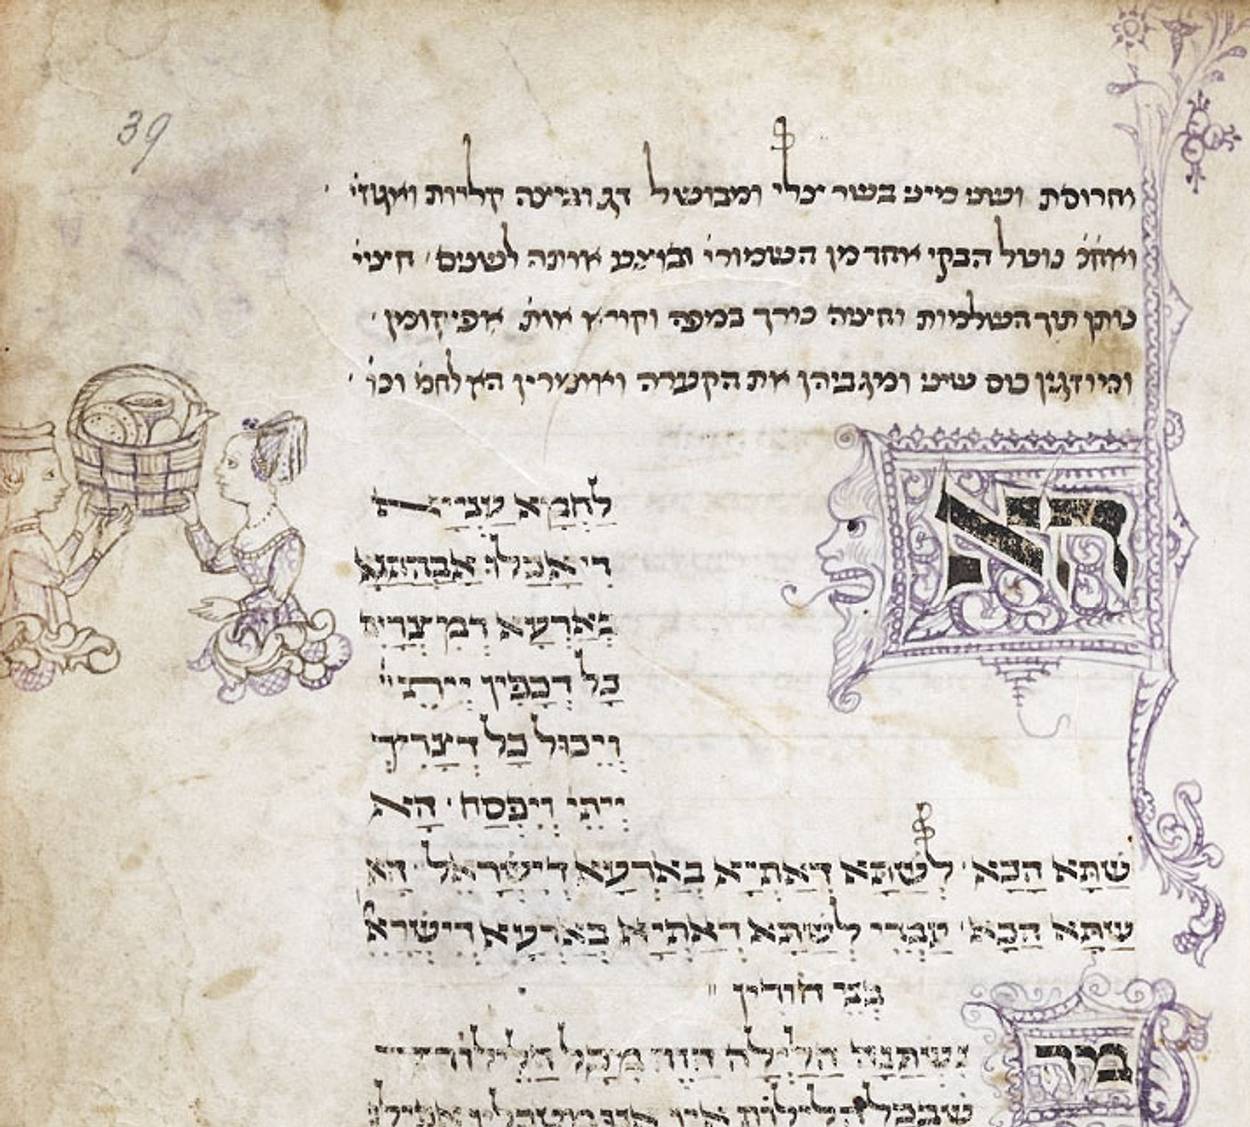 39
וחרוסת ושני מיני בשר צלי ומבושל דג וביצה קליות ואגוזי׳
ואח״כ נוטל הבקי אחד מן השמורי׳ ובוצע אותה לשנים׳ חציי׳
נותן תוך השלמות וחציה כורך במפה וקורא אות׳ אפיקומן׳
ומוזגין כוס שיני ומגביהין את הקערה ואומרין הא לחמ׳ וכו׳
הא
לַחְמָא עַנְיָא
דִי אֲכָלוּ אַבְהָתָנָא
בְּאַרְעָא דְמִצְרָיִם
כָּל דִכְפִין יֵיתֵי
וְיֵכוּל כָּל דְצָרִיךְ
יֵיתֵי וְיִפְסַח׳ הָא
שַׁתָּא הָכָא׳ לְשַׁתָּא דְאָתְיָא בְּאַרְעָא דְיִשְׂרָאֵל׳ הָא
שַׁתָּא הָכָא׳ עַבְדֵי לְשַׁתָּא דְאָתְיָא בְּאַרְעָא דְיִשְׂרָאֵ
בְּנֵי חוֹרִין
מה
נִשְׁתַּנָּה הַלַּיְלָה הַזֶּה מִכָּל הַלֵּילוֹת
שבכל הלילות אין אנו מטבלין אפילו